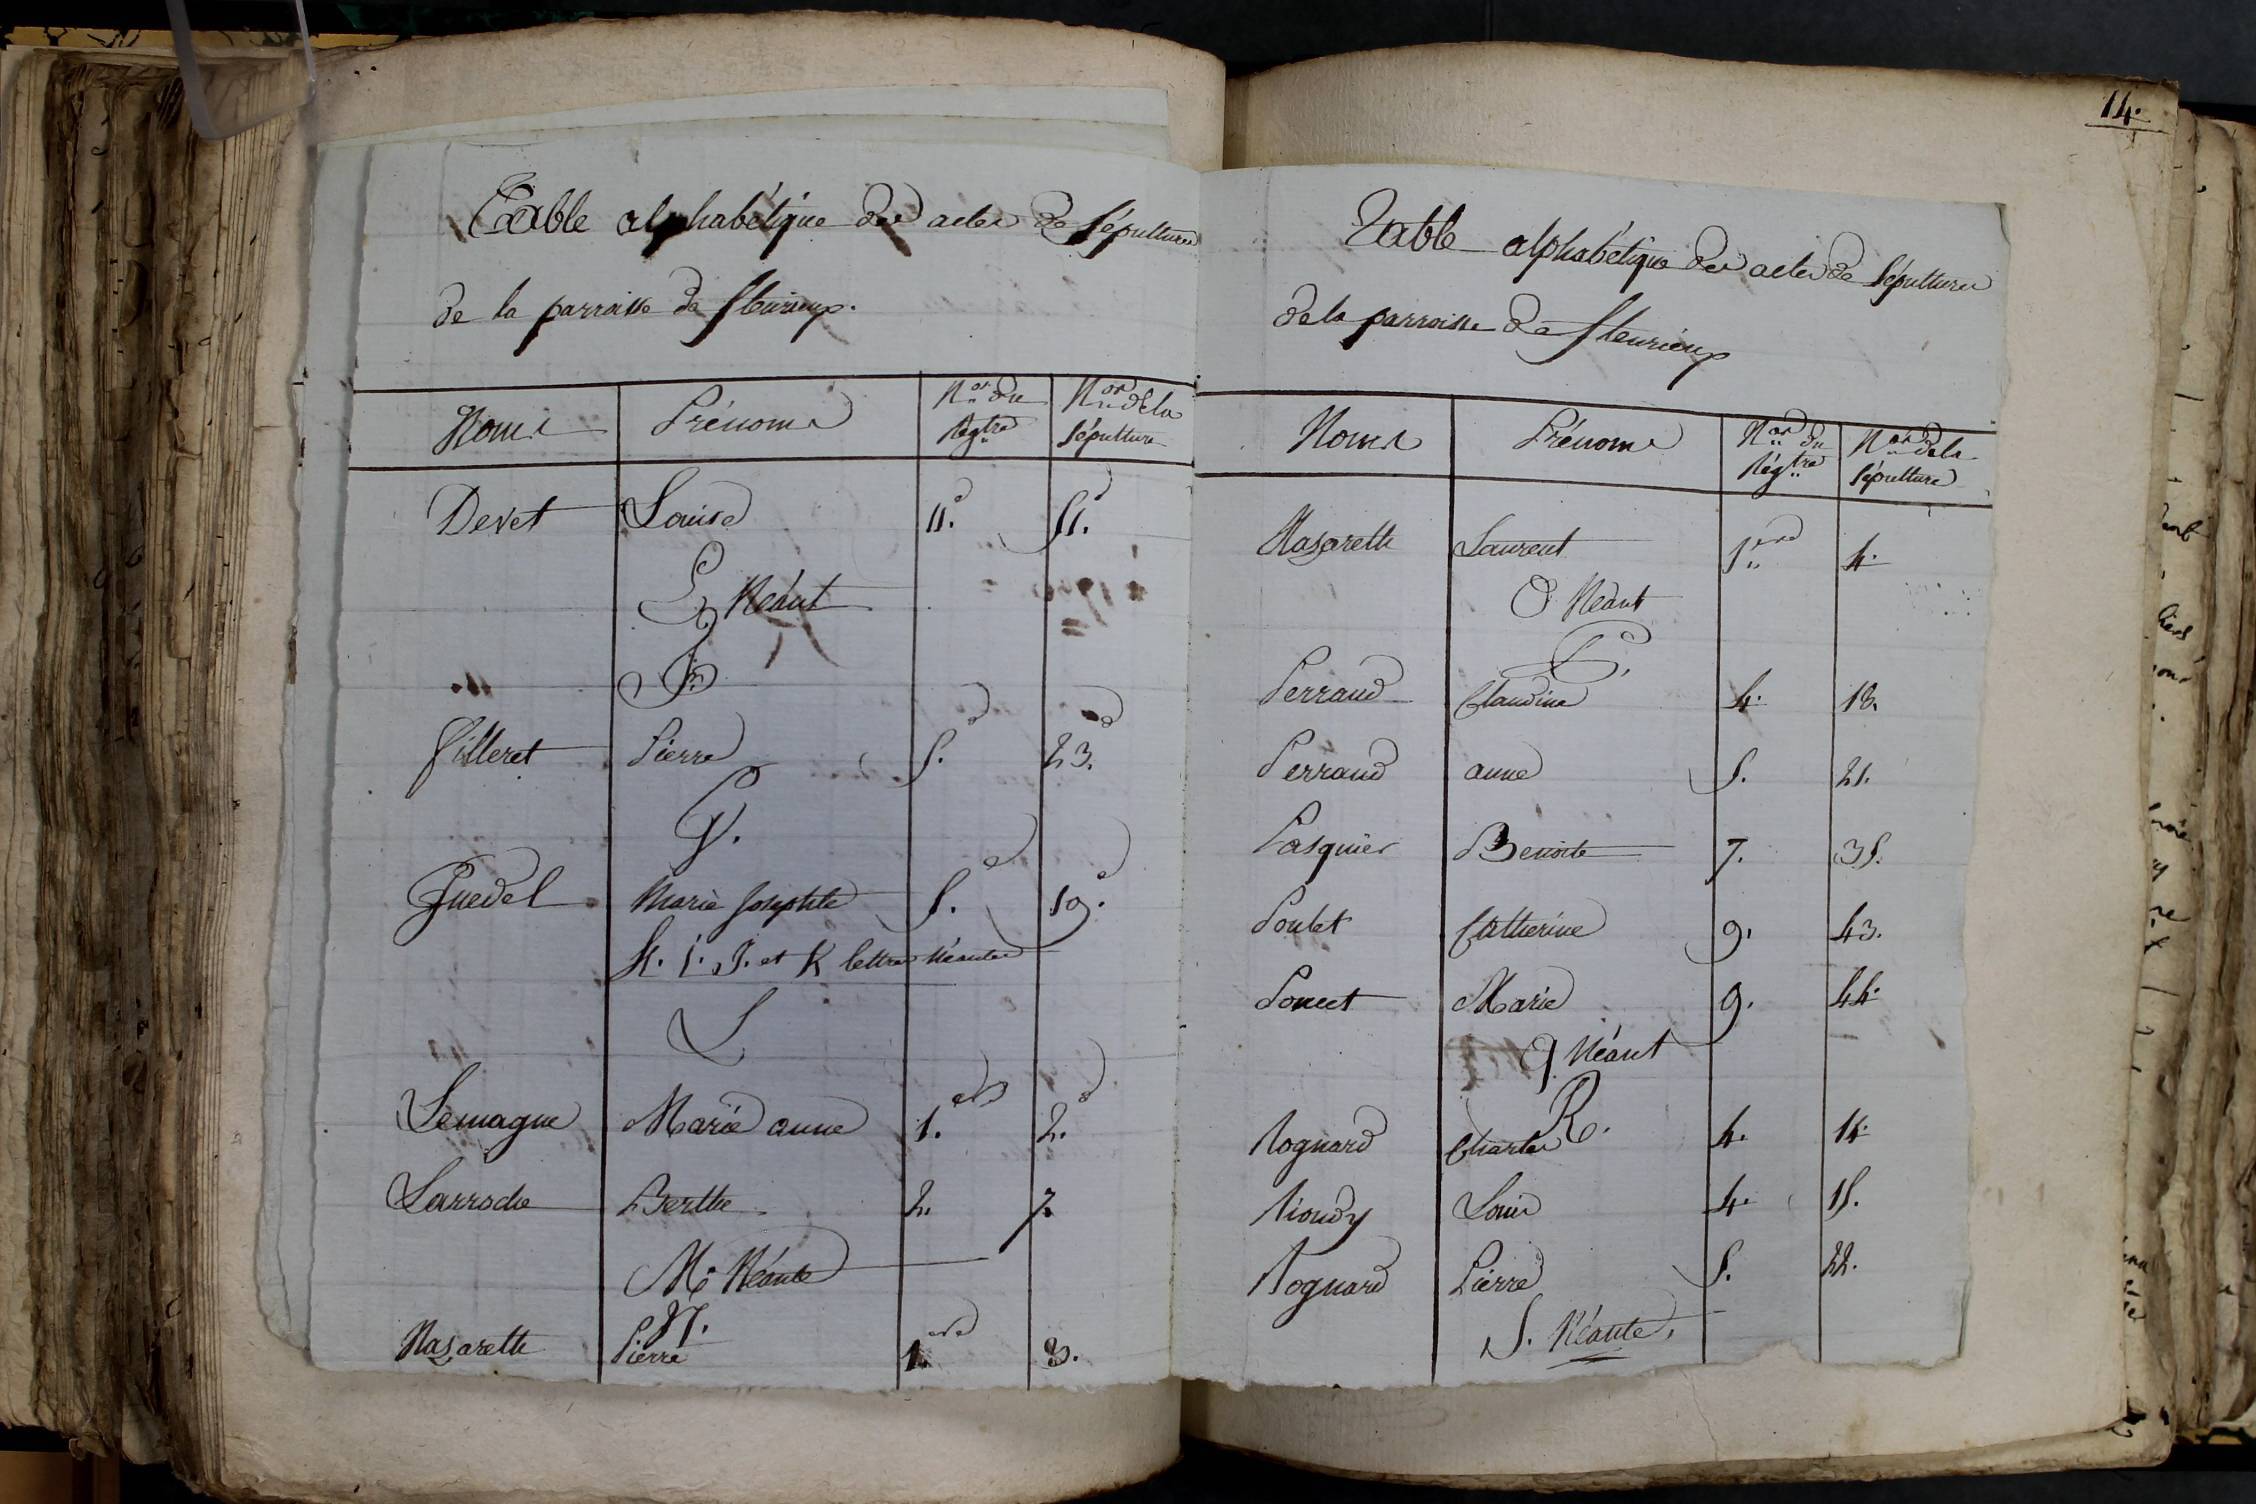 Table alphabétique des actes de sépultures
de la parroisse de fleurieux.
Noms Prénoms Nos du Régtre Nos de la sépulture
Devet Louise 11. 51.
E Néant
F.
filleret Pierre 5. 23.
G.
Guedel Marie Josephte 5. 19.
H. I. J. et K lettres Néantes
L
Lemagne Marie anne 1. 2.
Larroche Berthe 2. 7.
M. Néante
N.
Nasareth Pierre 1.ere 3.
14.
Table alphabétique des actes de sépultures
de la parroisse de fleurieux
Noms Prénoms Nos du Régtre Nos de la sépulture
Nasareth Laurent 1.ere 4.
O Néant
P.
Perraud Claudine 4. 18.
Perraud anne 5. 21.
Pasquier Benoite 7. 35.
Poulet Catherine 9. 43.
Poncet Marie 9. 44.
Q Néant
R.
Rognard Charles 4. 14.
Rioudy Louis 4. 15.
Rognard Pierre 5. 22.
S. Néante.